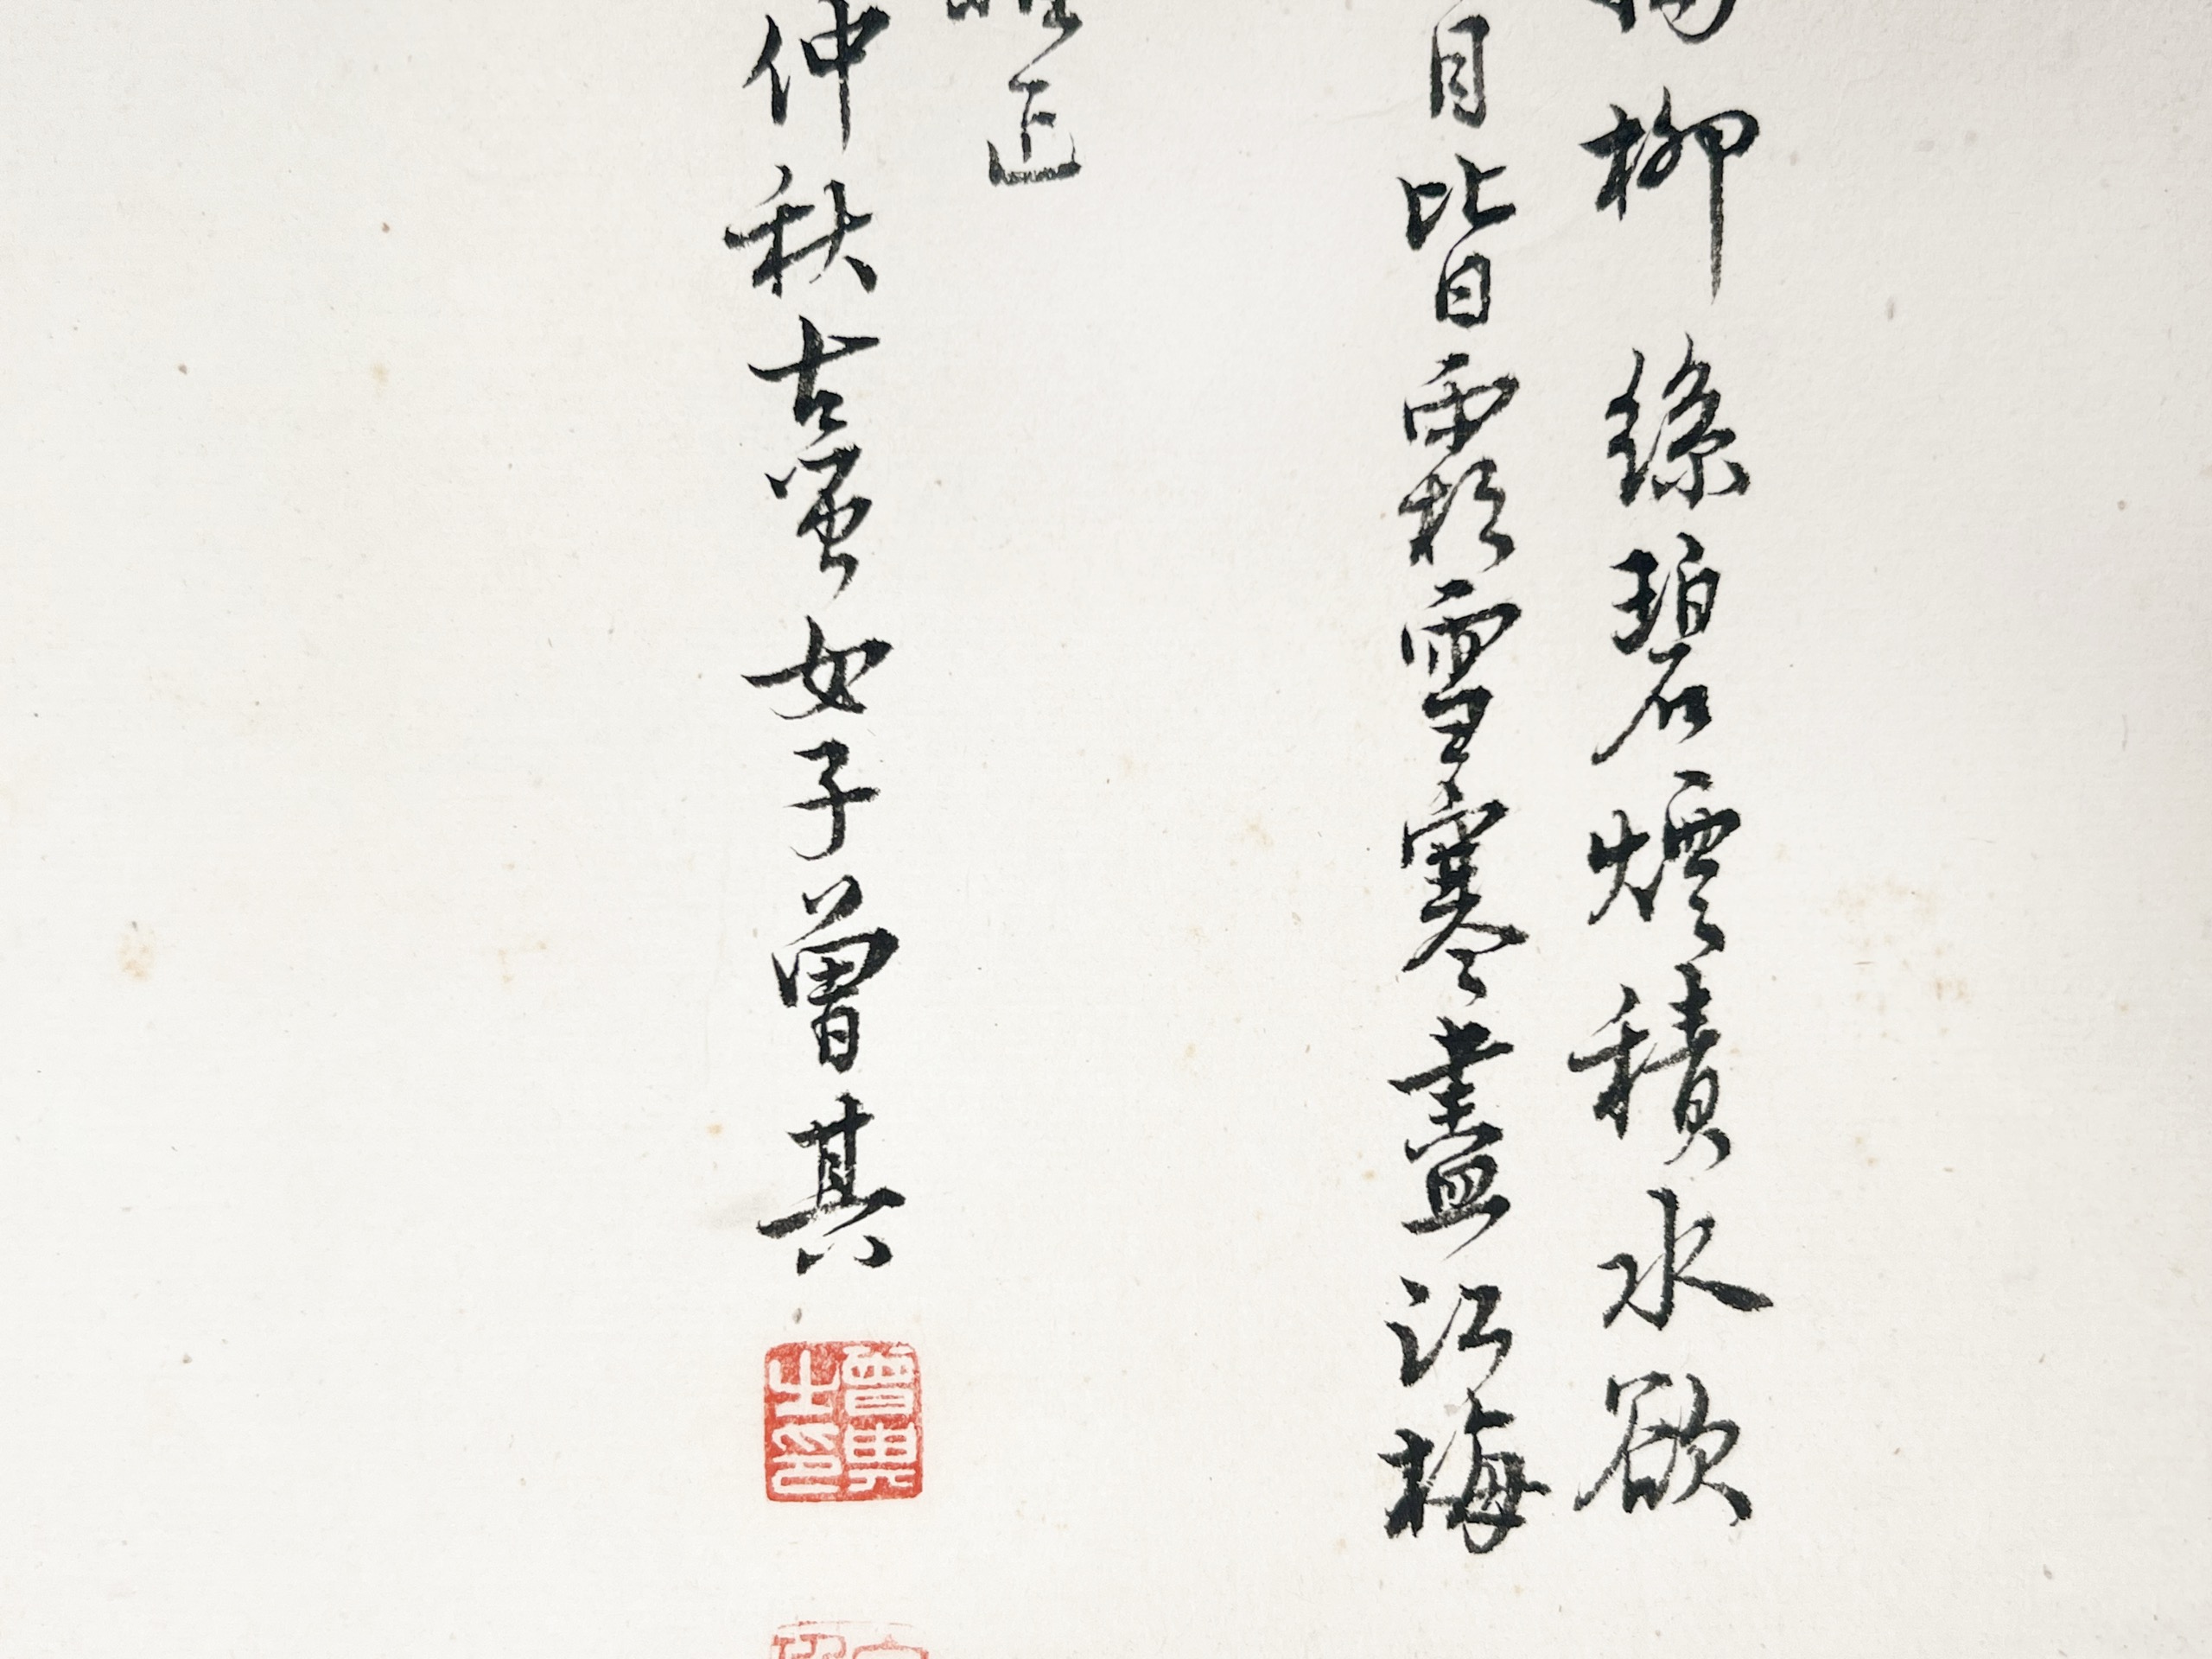 柳絲碧煙積水欲
目皆霜雪寒盡江梅
正
仲秋古蜀女子曾其
曾其之印